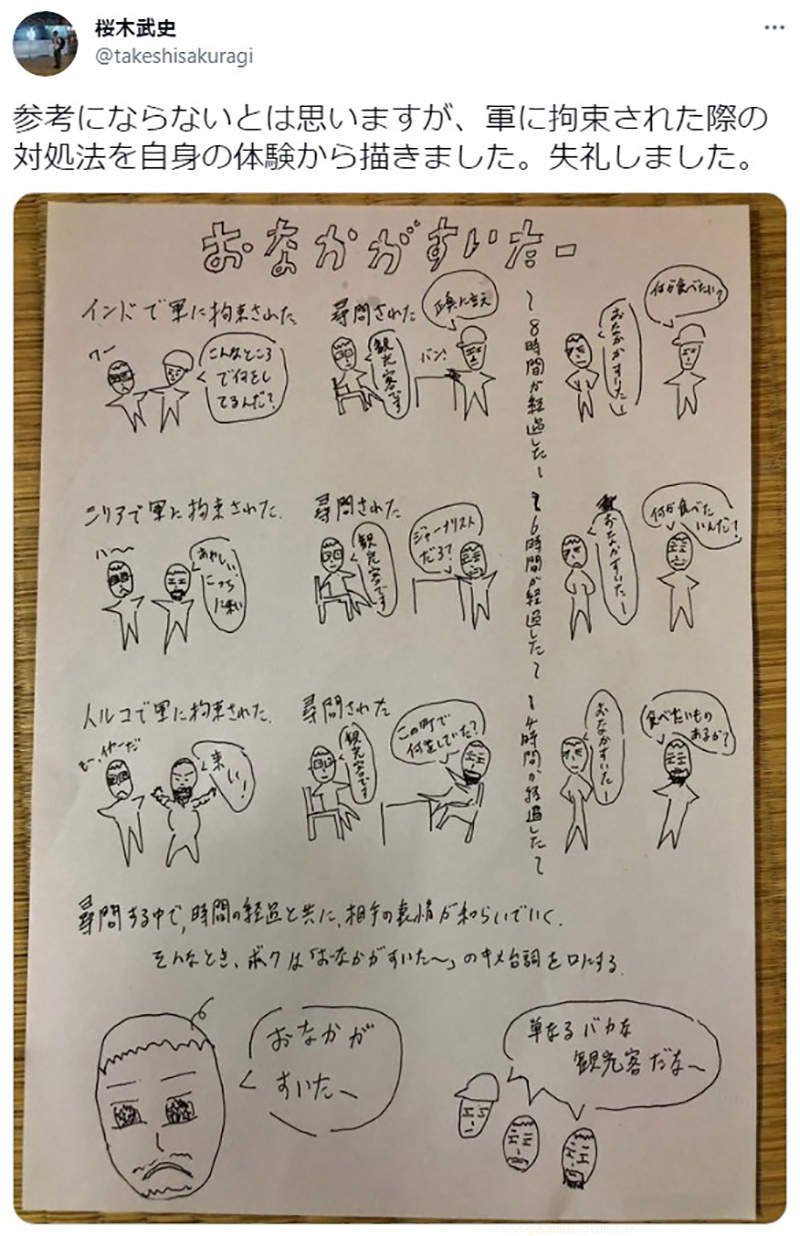 桜木武史
@takeshisakuragi
参考にならないとは思いますが、軍に拘束された際の
対処法を自身の体験から描きました。失礼しました。
おなかがすいたー
インドで軍に拘束された
ワー
こんなところ
で何をし
てるんだ?
尋問された
観光客です
正直に言え
バン!
〜8時間が経過した〜
おなかがすいたー
何が食べたい?
シリアで軍に拘束された.
ハ〜
あやしい
こっち
に来い
尋問された
観光客です
ジャーナリスト
だろ?
〜6時間が経過した〜
おなかすいたー
何が食べた
いんだ?
トルコで軍に拘束された.
来い!
尋問された
観光客です
この町で
何をしていた?
〜4時間が経過した〜
おなかすいたー
食べたいもの
あるか?
尋問する中で,時間の経過と共に,相手の表情が和らいでいく.
そんなとき、ボクは「おなかがすいた〜」のキメ台詞を口にする.
おなかが
すいた〜
単なるバカな
観光客だな〜